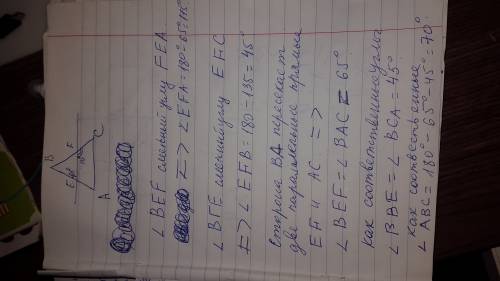 B
E
F
C
A
∠BEF смежный углу FEA
=> ∠EFA = 180° - 65° = 115°
∠BFE смежный углу EFC
=> ∠EFB = 180 - 135 = 45°
Сторона ВА пересекает
две параллельные прямые
EF ∥ AC =>
∠BEF = ∠BAC = 65°
как соответственные углы
∠BBE = ∠BCA = 45°
как соответственные
∠ABC = 180° - 65° - 45° = 70°